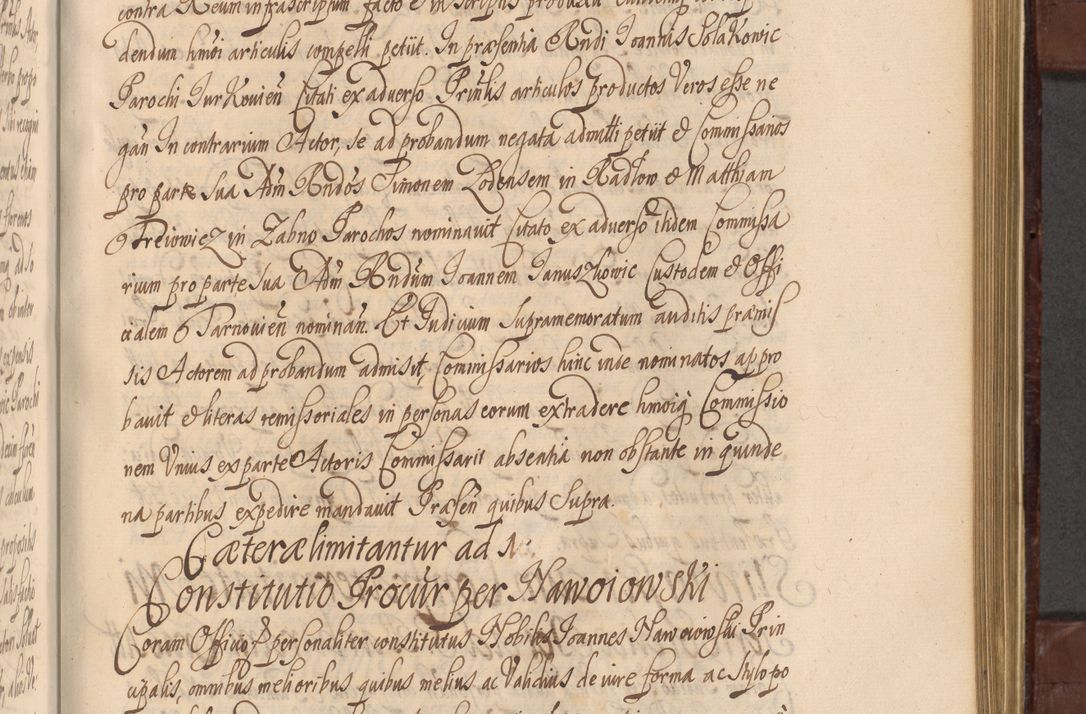 contra Reum infrascriptum facto et in scriptis producta
dendum hmõi articulis compelli petiit. In præsentia Rndi Joannis Solakowic
Parochi Jurkovien̄ Citati ex adverso Prinlis articulos productos Veros esse ne
gan̄ In contrarium Actor, se ad probandum negata admitti petiit et Commissarios
pro parte sua Adm Rndos Simonem Zodensem in Radłow et Matthiam
Treiowicz in Zabno Parochos nominavit Citato ex adverso itidem Commissa
rium pro parte sua Adm Rndum Joannem Januszkowic Custodem et Offi
cialem Tarnovien̄ nominan̄. Et Judicium supramemoratum auditis præmis
sis Actorem ad probandum admisit, Commissarios hinc inde nominatos appro
bavit et literas remissoriales in personas eorum extradere hmõiq Commissio
nem Unius ex parte Actoris Commissarii absentia non obstante in quinde
na partibus expedire mandavit Præsen̄ quibus supra.
Cæteræ limitantur ad
Constitutio Procur per Nawoiowski
Coram Officio personaliter constitutus Nobilis Joannes Nawoiowski Prin
cipalis, omnibus melioribus quibus melius ac Validius de iure forma ac stylo po